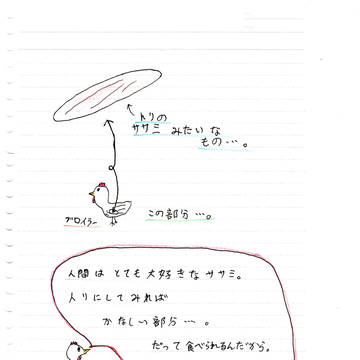 トリの
ササミ みたいな
もの・・・。
ブロイラー
この部分・・・。
人間は とても 大好きな ササミ。
トリにしてみれば
かなしい部分・・・。
だって 食べられるんだから。